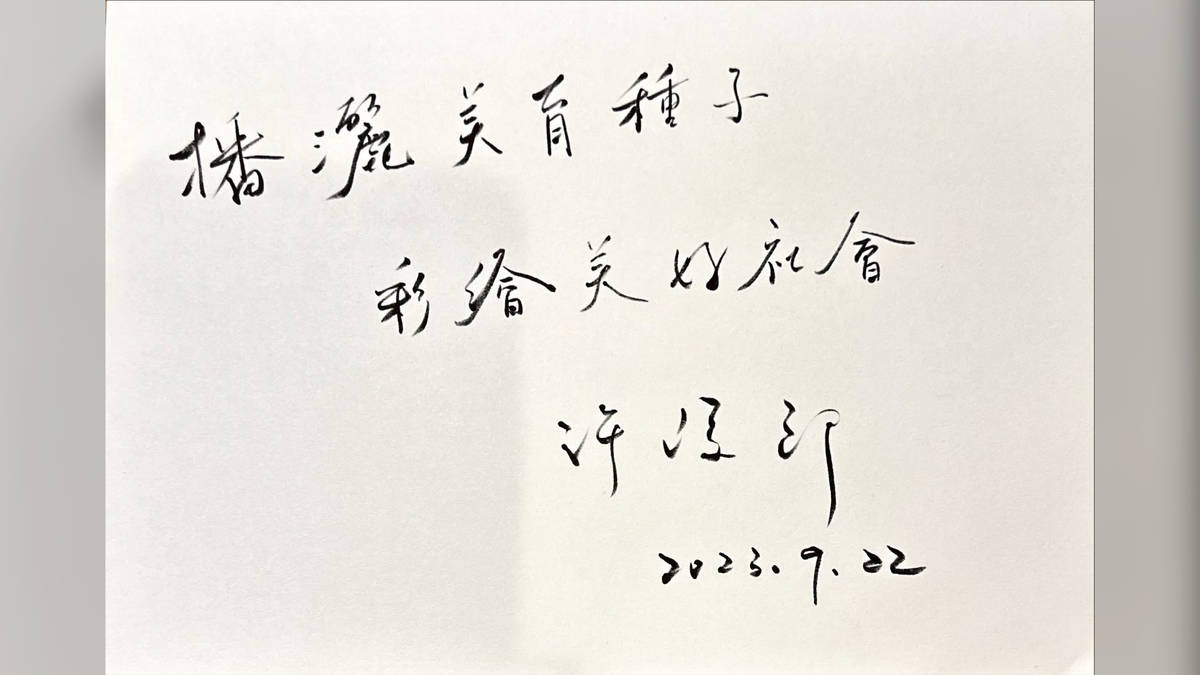 播灑美育種子
彩繪美好社會
许
2023.9.22